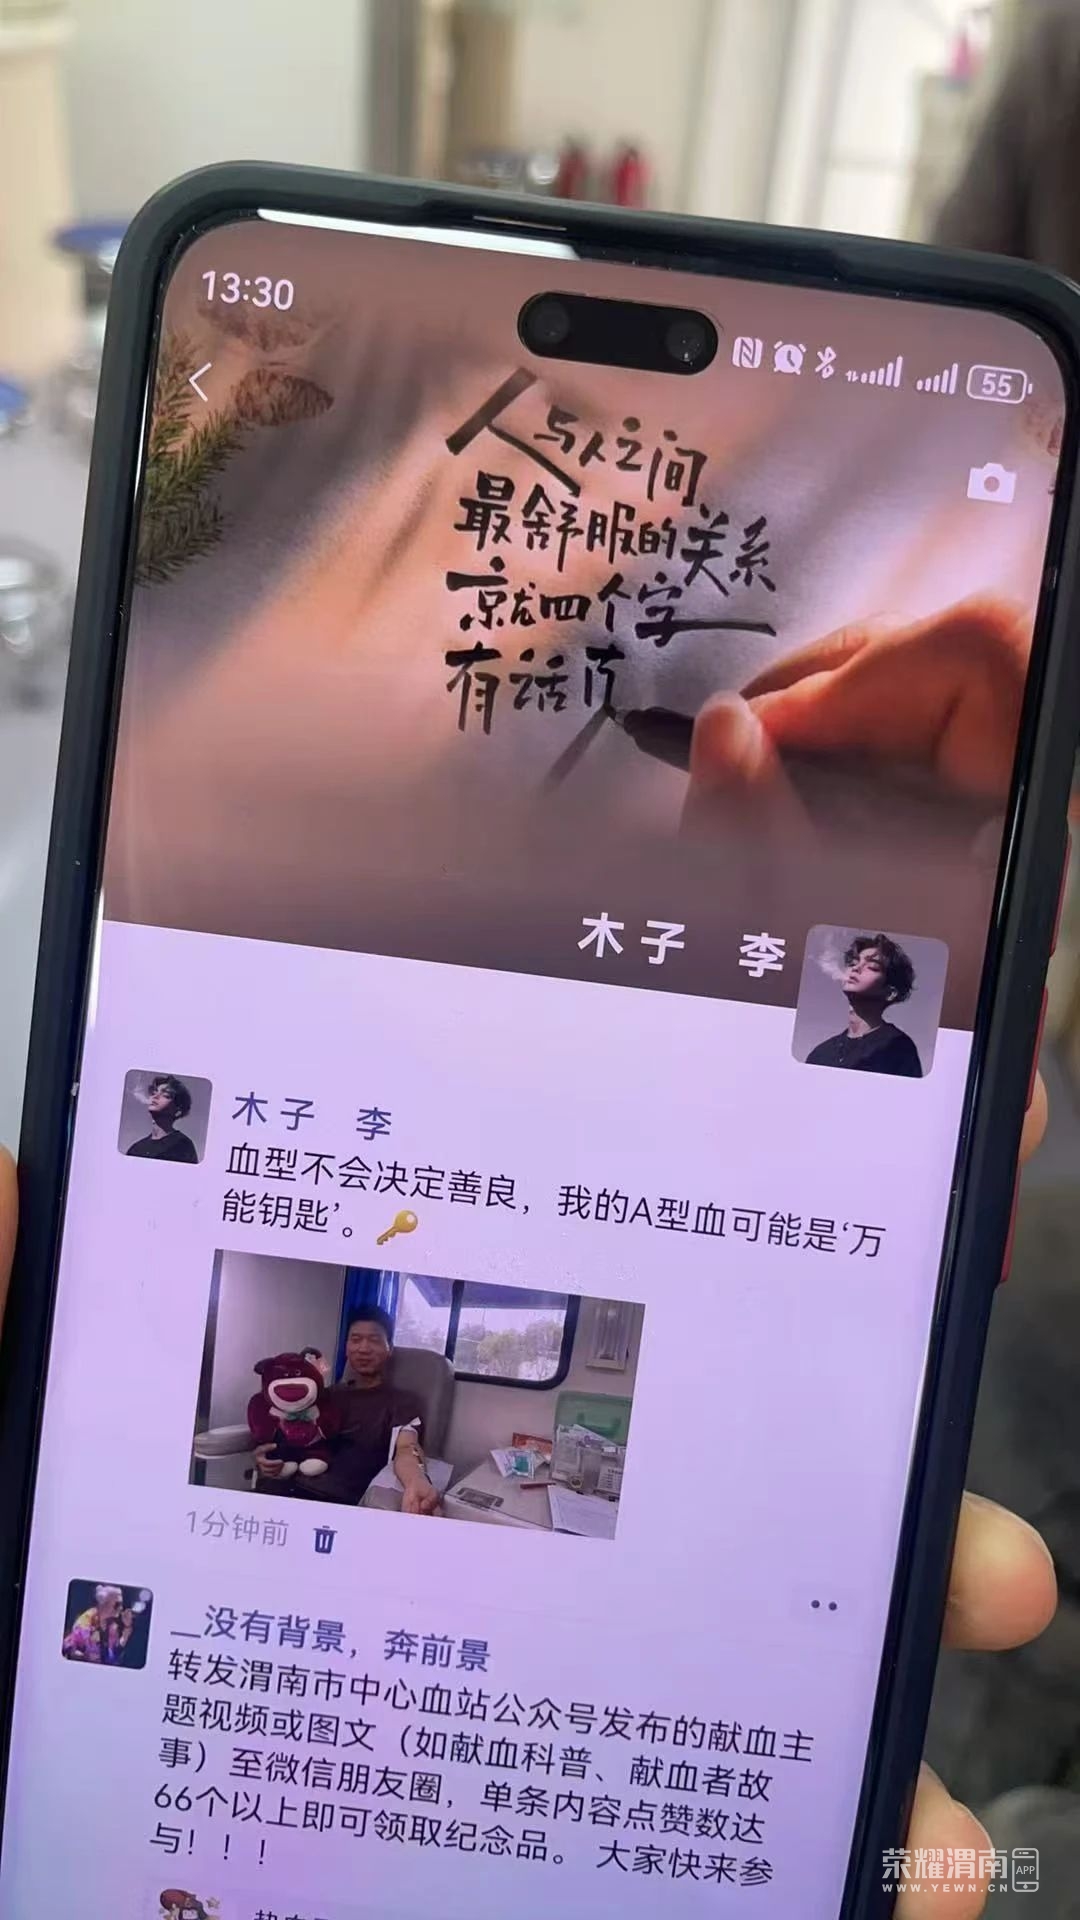 13:30
55
人与人之间
最舒服的关系
就四个字
有话
木子 李
木子 李
血型不会决定善良，我的A型血可能是‘万
能钥匙’。🔑
1分钟前
__没有背景，奔前景
转发渭南市中心血站公众号发布的献血主
题视频或图文（如献血科普、献血者故
事）至微信朋友圈，单条内容点赞数达
66个以上即可领取纪念品。 大家快来参
与！！！
荣耀渭南 APP
WWW.YEWN.CN